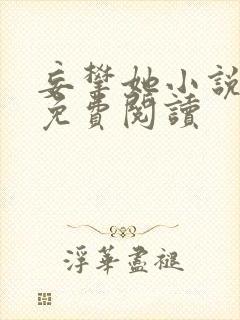 妄攀她小說
免費閱讀
浮華盡褪